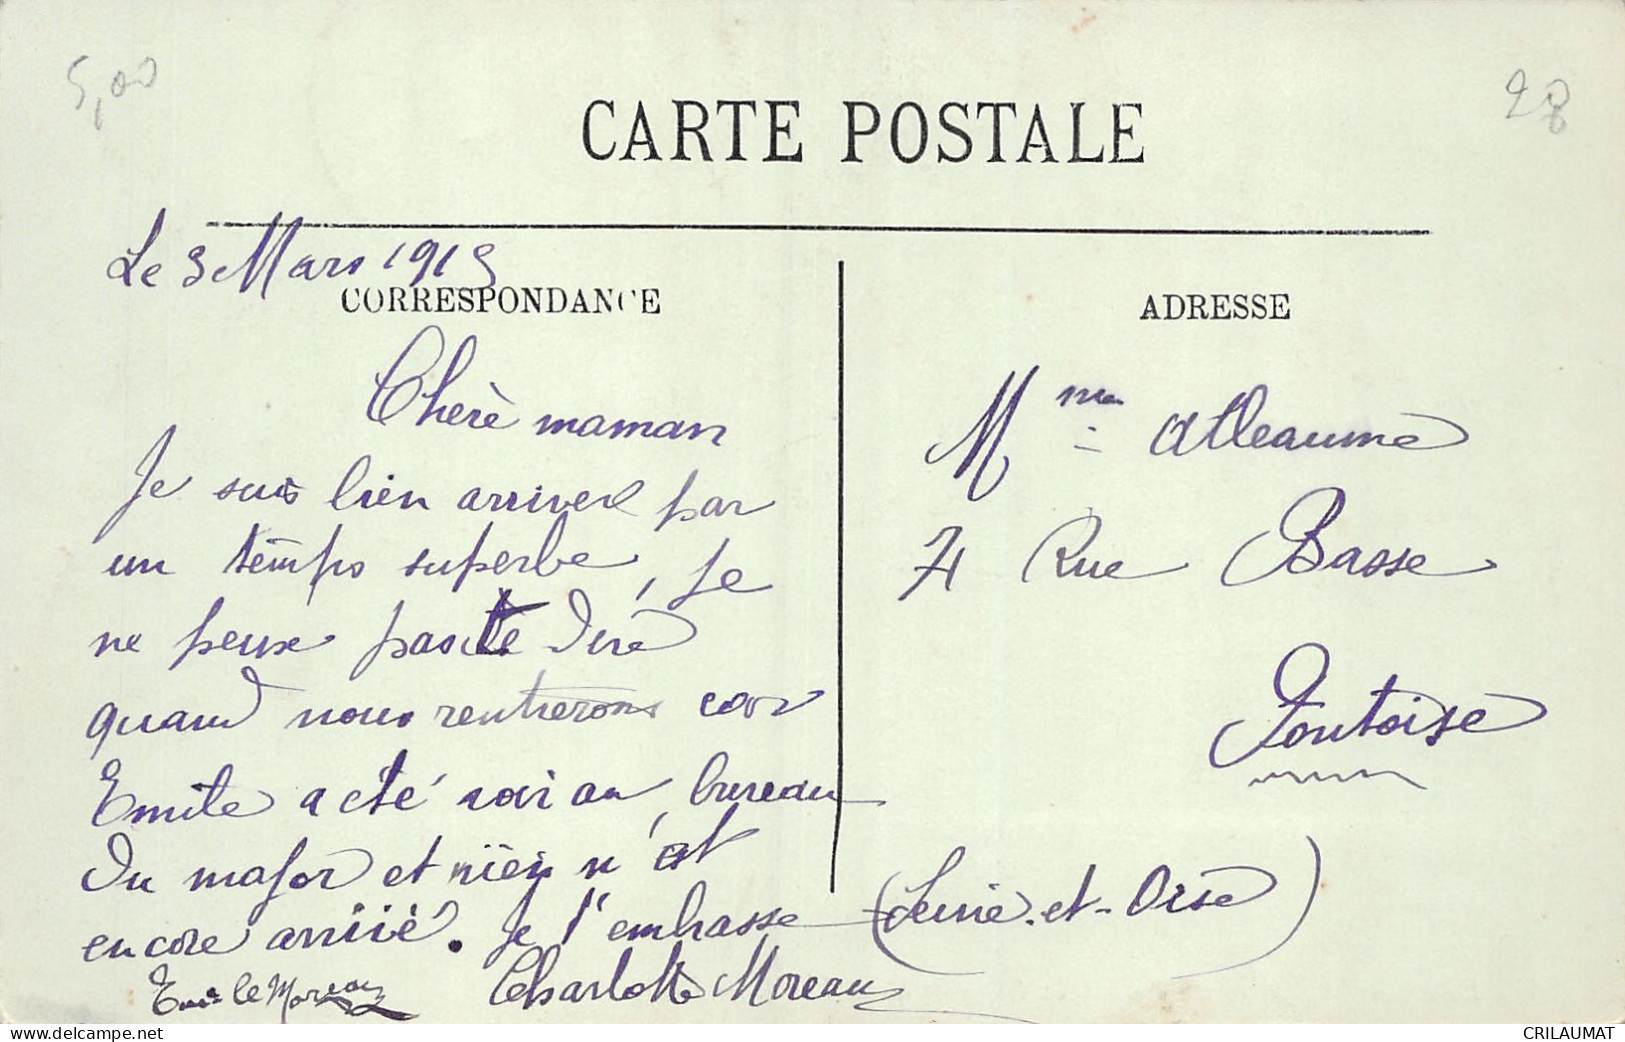 5,00
28
CARTE POSTALE
Le 3 Mars 1913
CORRESPONDANCE
Cherè maman
Je suis bien arriver par
un temps superbe, je
ne peux pas te dire
quand nous rentrerons car
Emile a été voir au bureau
du major et rien n'est
encore arrivé. Je t'embrasse
Emile Moreau Charlotte Moreau
ADRESSE
Mme Alleaume
71 Rue Basse
Pontoise
(Seine-et-Oise)
www.delcampe.net
CRILAUMAT